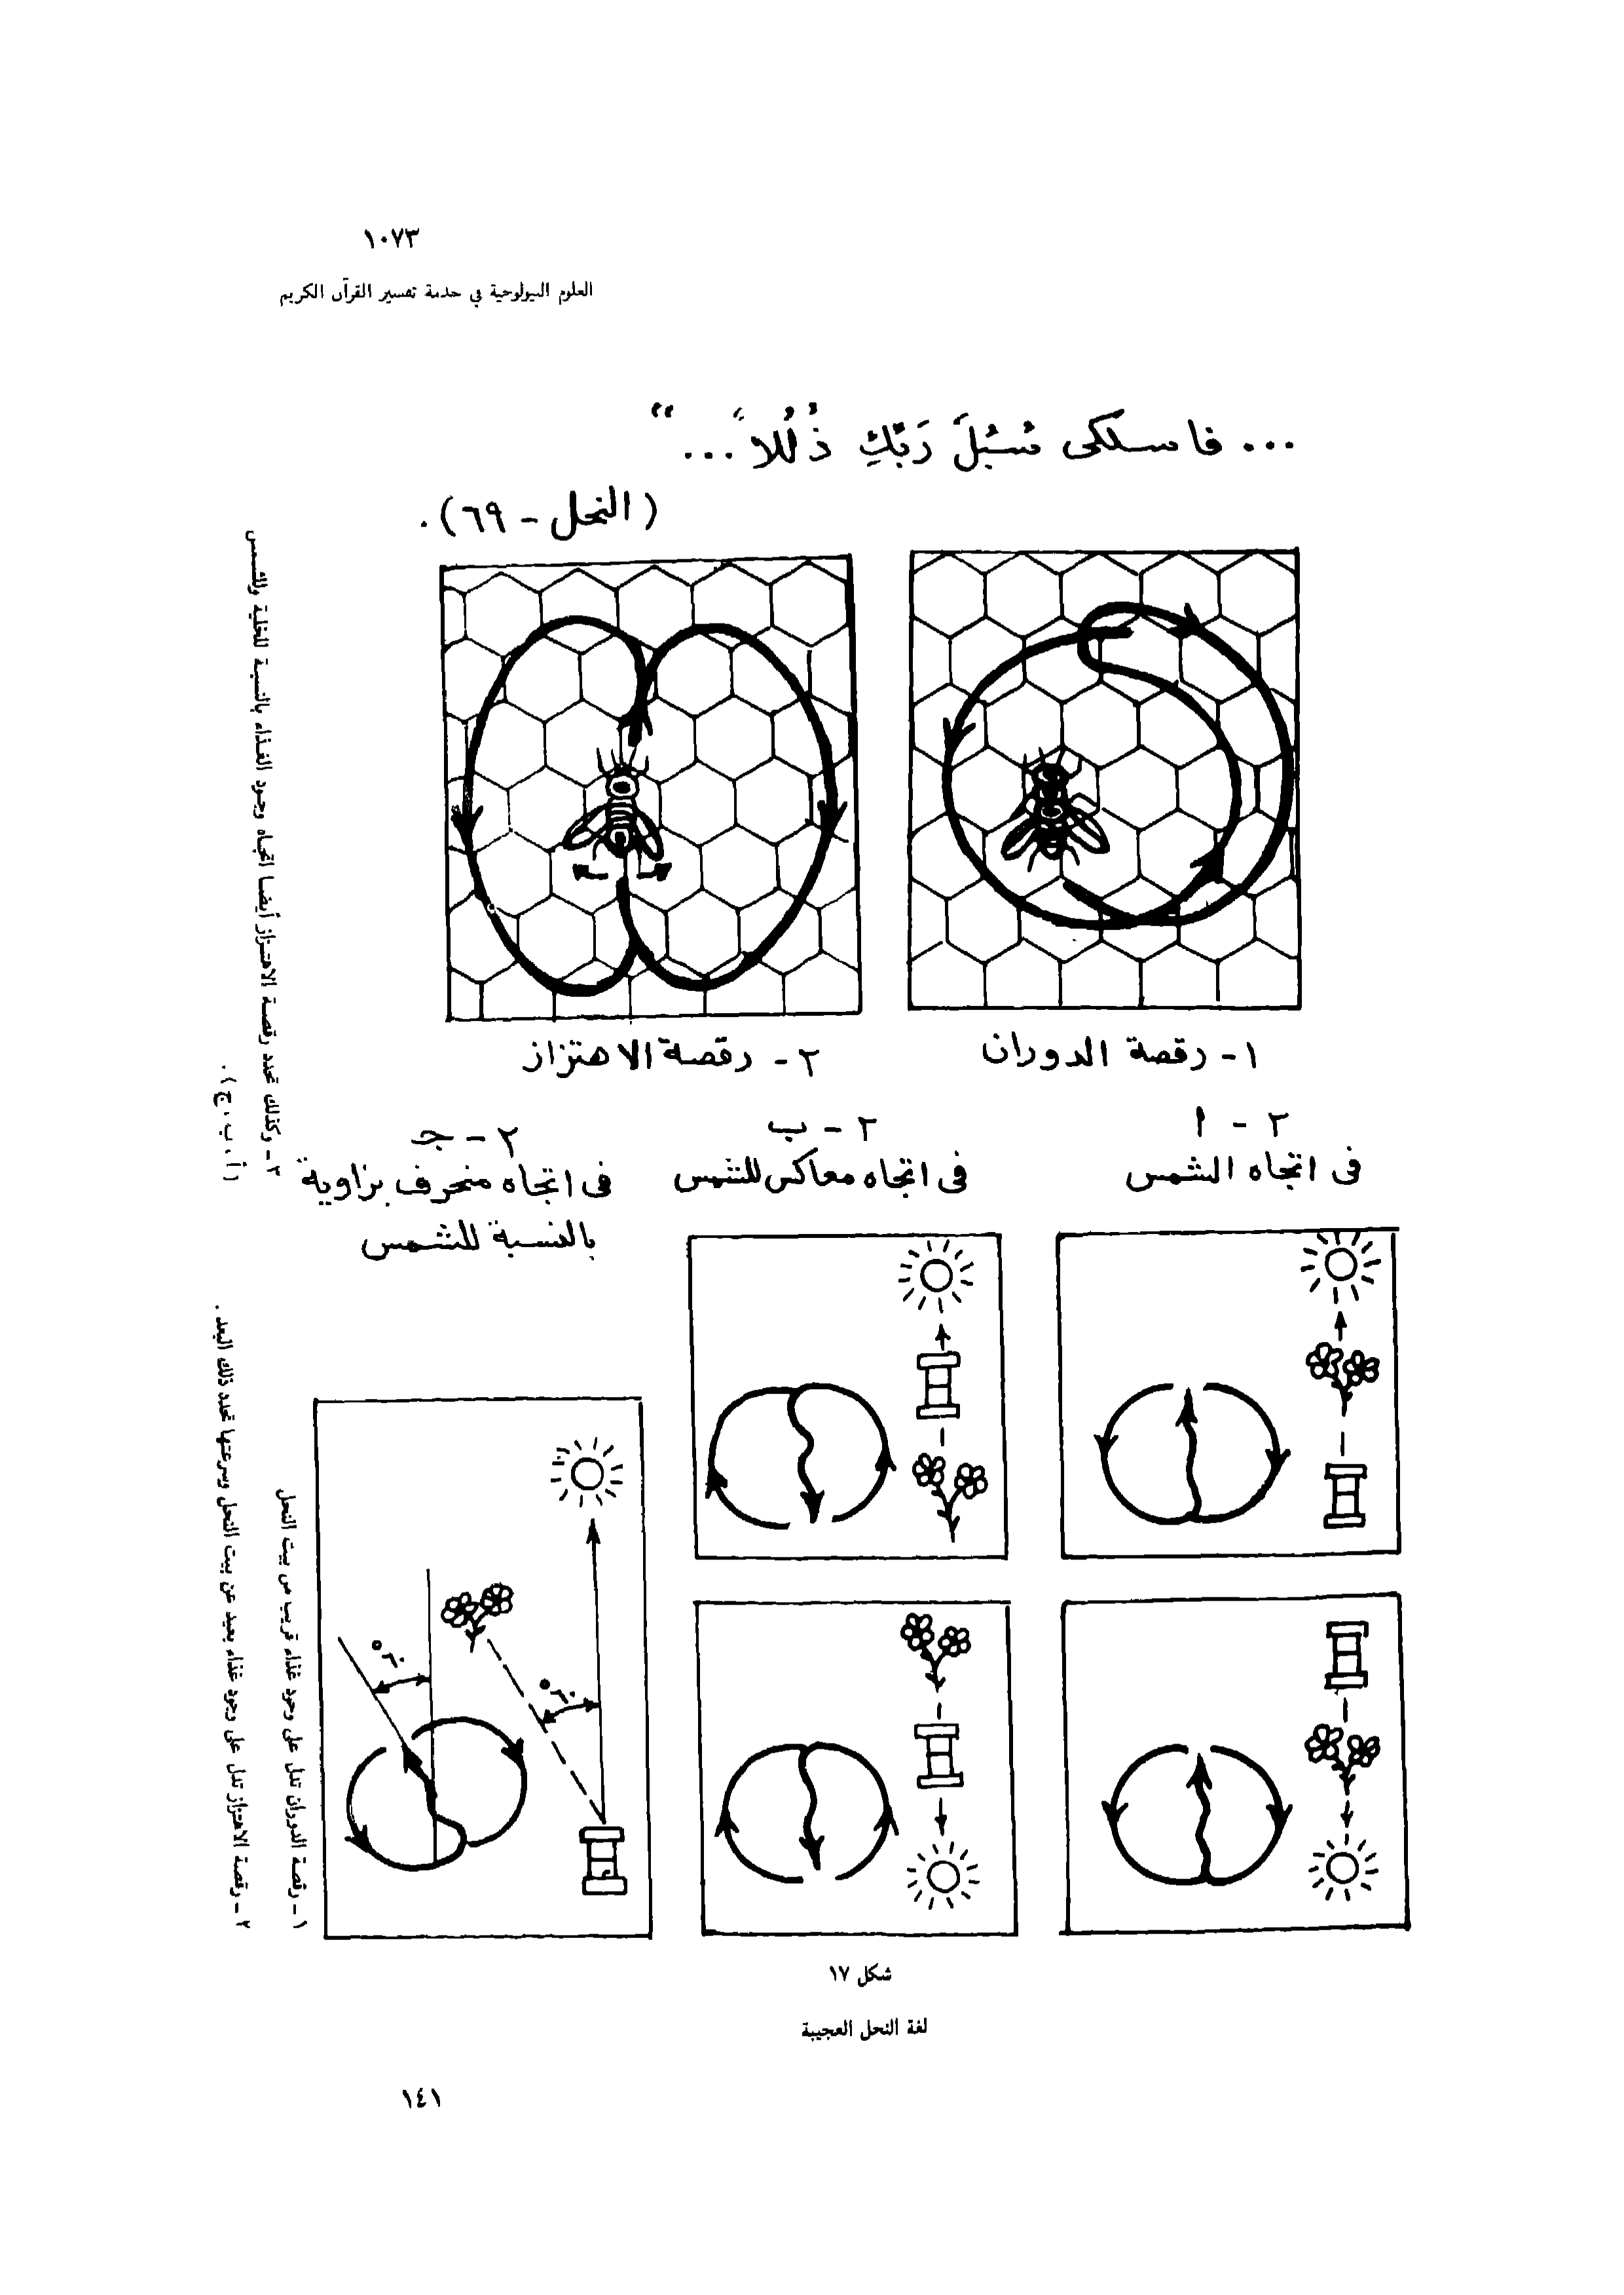 ١٠٧٣
العلوم البيولوجية في خدمة تفسير القرآن الكريم
... فاسلكى سُبُلَ رَبِّكِ ذُلُلاً ... ”
(النحل - ٦٩).
١- رقصة الدوران
٢- رقصة الاهتزاز
٢ - ا
فى اتجاه الشمس
٢ - ب
فى اتجاه معاكس للشمس
٢ - جـ
فى اتجاه منحرف بزاوية
بالنسبة للشمس
٣٠°
٣٠°
١ - رقصة الدوران تدل على وجود غذاء قريب من بيت النحل
٢ - رقصة الاهتزاز تدل على وجود غذاء بعيد عن بيت النحل وسرعتها تحدد ذلك البعد .
٣ - وكذلك تحدد رقصة الاهتزاز أيضا اتجاه وجود الغذاء بالنسبة للخلية والشمس
(أ ، ب ، ج) .
شكل ١٧
لغة النحل العجيبة
١٤١